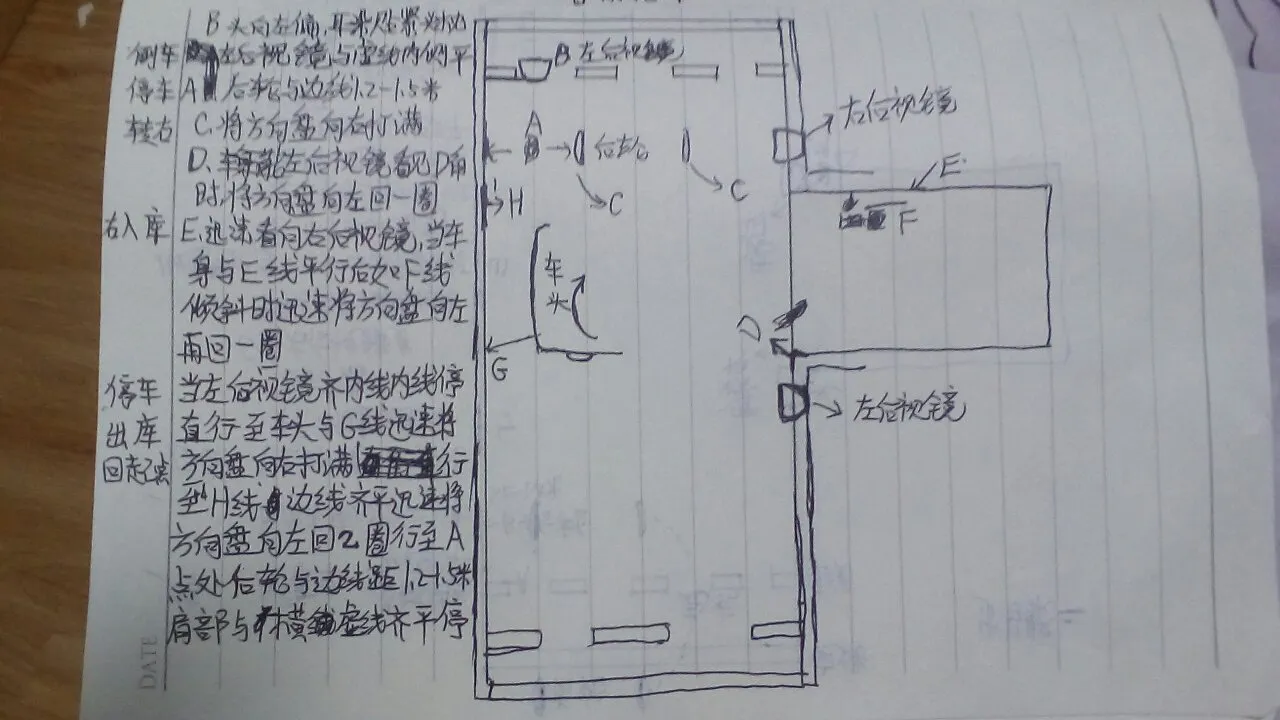 B头向左偏,耳朵贴紧
倒车 左后视镜与虚线内侧平
停车 A 后轮与边线1.2-1.5米
转右 C.将方向盘向右打满
D、左后视镜看见D角
时,将方向盘向左回一圈
右入库 E、迅速看向右后视镜,当车
身与E线平行后如F线
倾斜时迅速将方向盘向左
再回一圈
停车 当左后视镜齐内线内线停
出库 直行至车头与G线迅速将
回起点 方向盘向右打满 直行
至H线 边线齐平迅速将
方向盘向左回2圈行至A
点处后轮与边线距1.2-1.5米
肩部与横虚线齐平停
B 左后视镜
右后视镜
A
后左右
C
C
H
E
F
车头
D
G
左后视镜
DATE